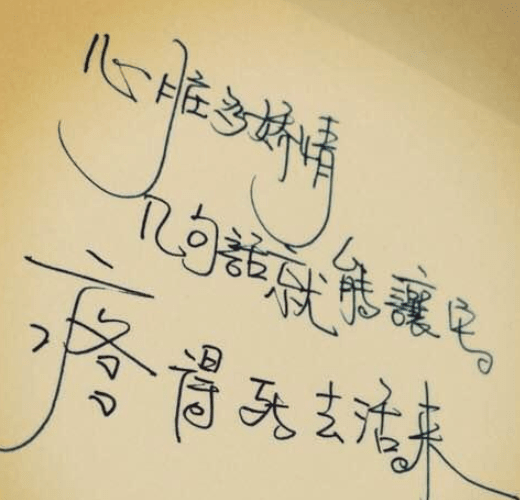 心脏多矯情
几句話就能讓它
疼得死去活来